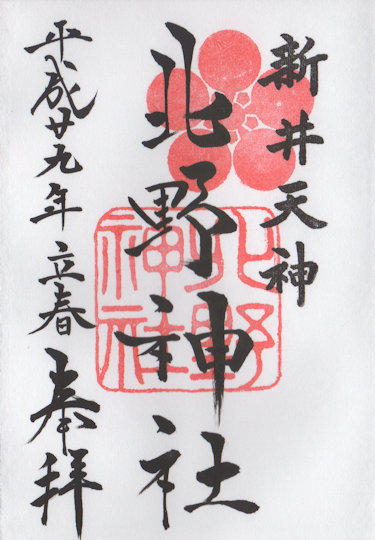 新井天神
北野神社
平成廿九年立春奉拝
北野
神社